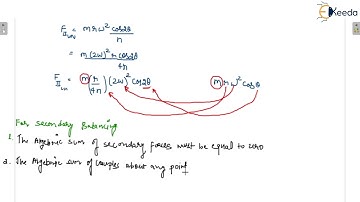 Ekeeda
F_IIun = mrω² cos2θ/n
= m(2ω)² r cos2θ/4n
F_IIun = m(r/4n)(2ω)² cos2θ    mrω² cosθ
For secondary Balancing
1. The Algebraic sum of secondary forces must be equal to zero
2. The Algebraic sum of couples about any point